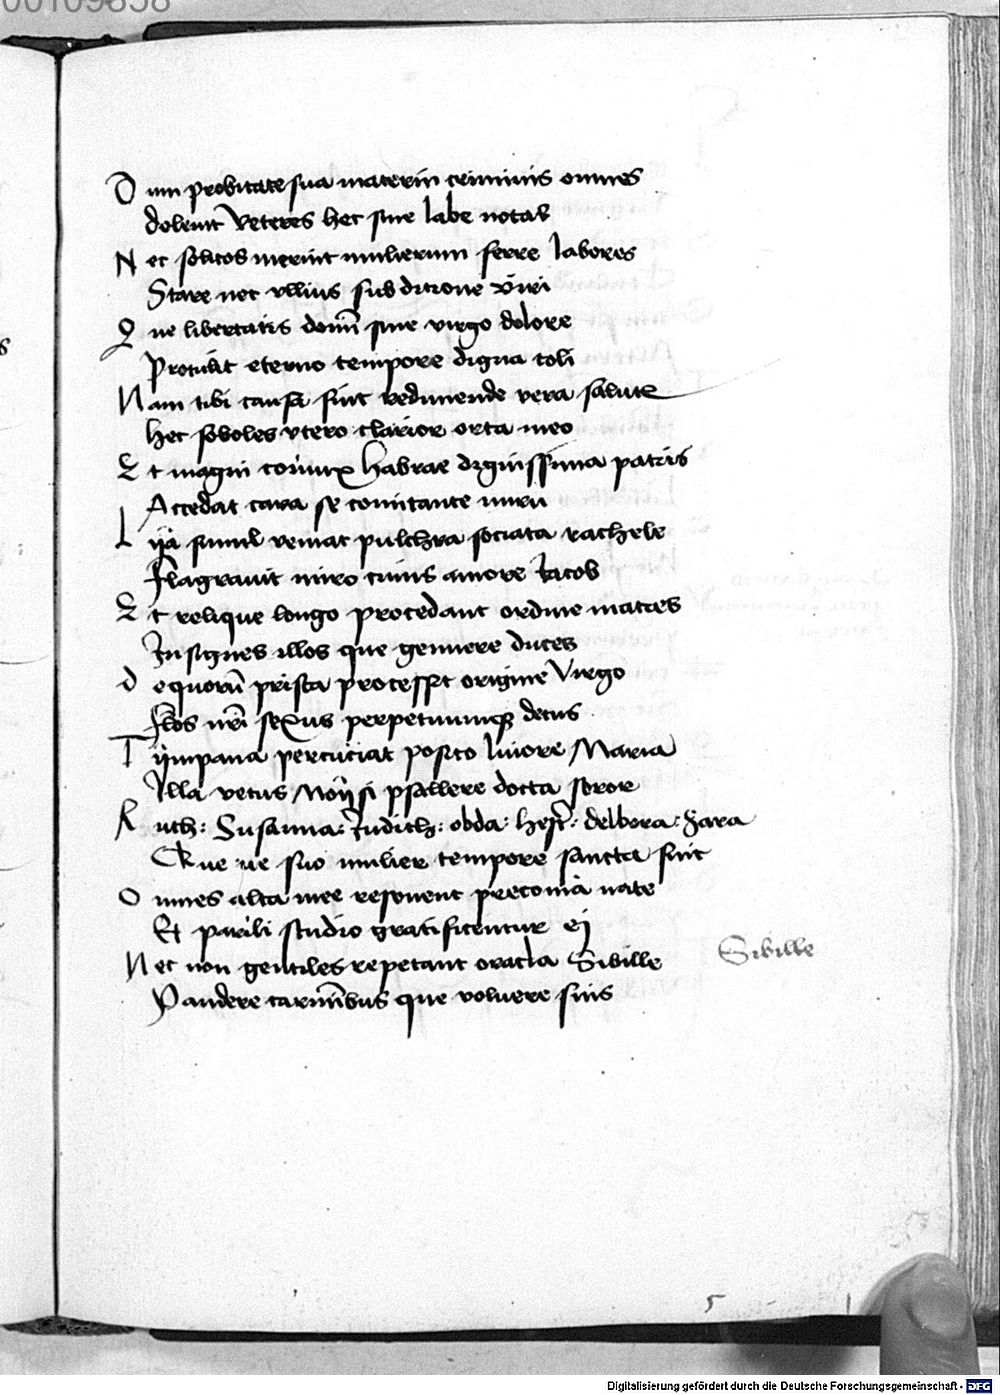 00109858
Dum probitate sua materni criminis omnes
Delerit veteres hec sine labe notas
Nec solitos merint mulierum ferre labores
Stare nec vllius sub ditione viri
Que libertatis domi sine virgo dolore
Protulit eterno tempore digna coli
Nam tibi causa fuit redimende vera salutis
Hec soboles vtero clarior orta meo
Et magni coniux Habrae dignissima patris
Accedat cara se comitante nuru
Lya simul veniat pulchra sociata rachele
Flagrauit miro cuius amore Iacob
Et relique longo procedant ordine matres
Insignes illos que genuere duces
De quorum prisca processit origine Virgo
Flos nri sexus perpetuumque decus
Tympana percuciat posito liuore Maria
Illa vetus Moysi psallere docta soror
Ruth: Susanna: Iudith: olda: hester: delbora: Sara
Queue suo mulier tempore sancta fuit
Omnes alta mee resonent preconia nate
Et parili studio gratificentur ei
Nec non gentiles repetant oracla Sibille
Pandere carminibus que voluere suis
Sibille
5
Digitalisierung gefördert durch die Deutsche Forschungsgemeinschaft - DFG